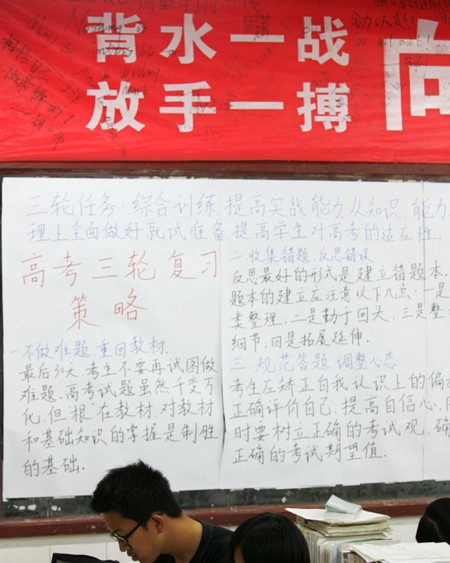 背水一战
放手一搏
向
三轮任务:综合训练,提高实战能力,从知识,能力
理上全面做好就试准备,提高学生对高考的适应性.
高考三轮复习
策略
一不做难题,重回教材.
最后30天,考生不要再试图做
难题,高考试题虽然千变万
化,但"根"在教材,对教材
和基础知识的掌握是制胜
的基础.
二收集错题,反思错误
反思最好的形式是建立错题本.
题本的建立应注意以下几点:一是
类整理,二是勤于回头,三是整
细节,四是拓展延伸.
三 规范答题,调整心态
考生应矫正自我认识上的偏
正确评价自己,提高自信心.同
时要树立正确的考试观,确
正确的考试期望值.